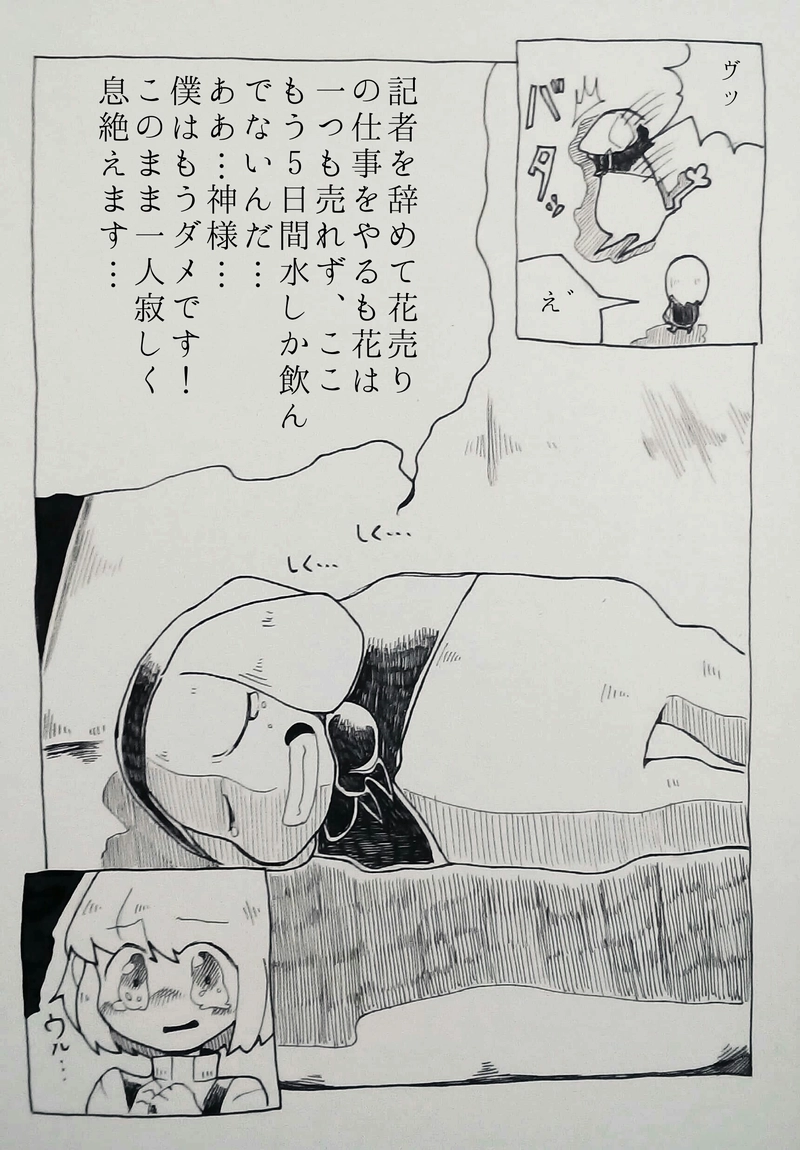 ヴッ
バタッ
え゛
記者を辞めて花売り
の仕事をやるも花は
一つも売れず、ここ
もう5日間水しか飲ん
でないんだ…
ああ…神様…
僕はもうダメです！
このまま一人寂しく
息絶えます…
しく…
しく…
ウル…